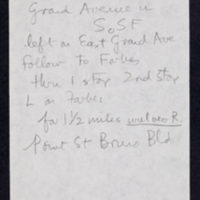 Grand Avenue in
SoSF
left on East Grand Ave
Follow to Forbes
thru 1 stop 2nd stop
L on Forbes
for 1 1/2 miles R.
Point St Bruno Bld